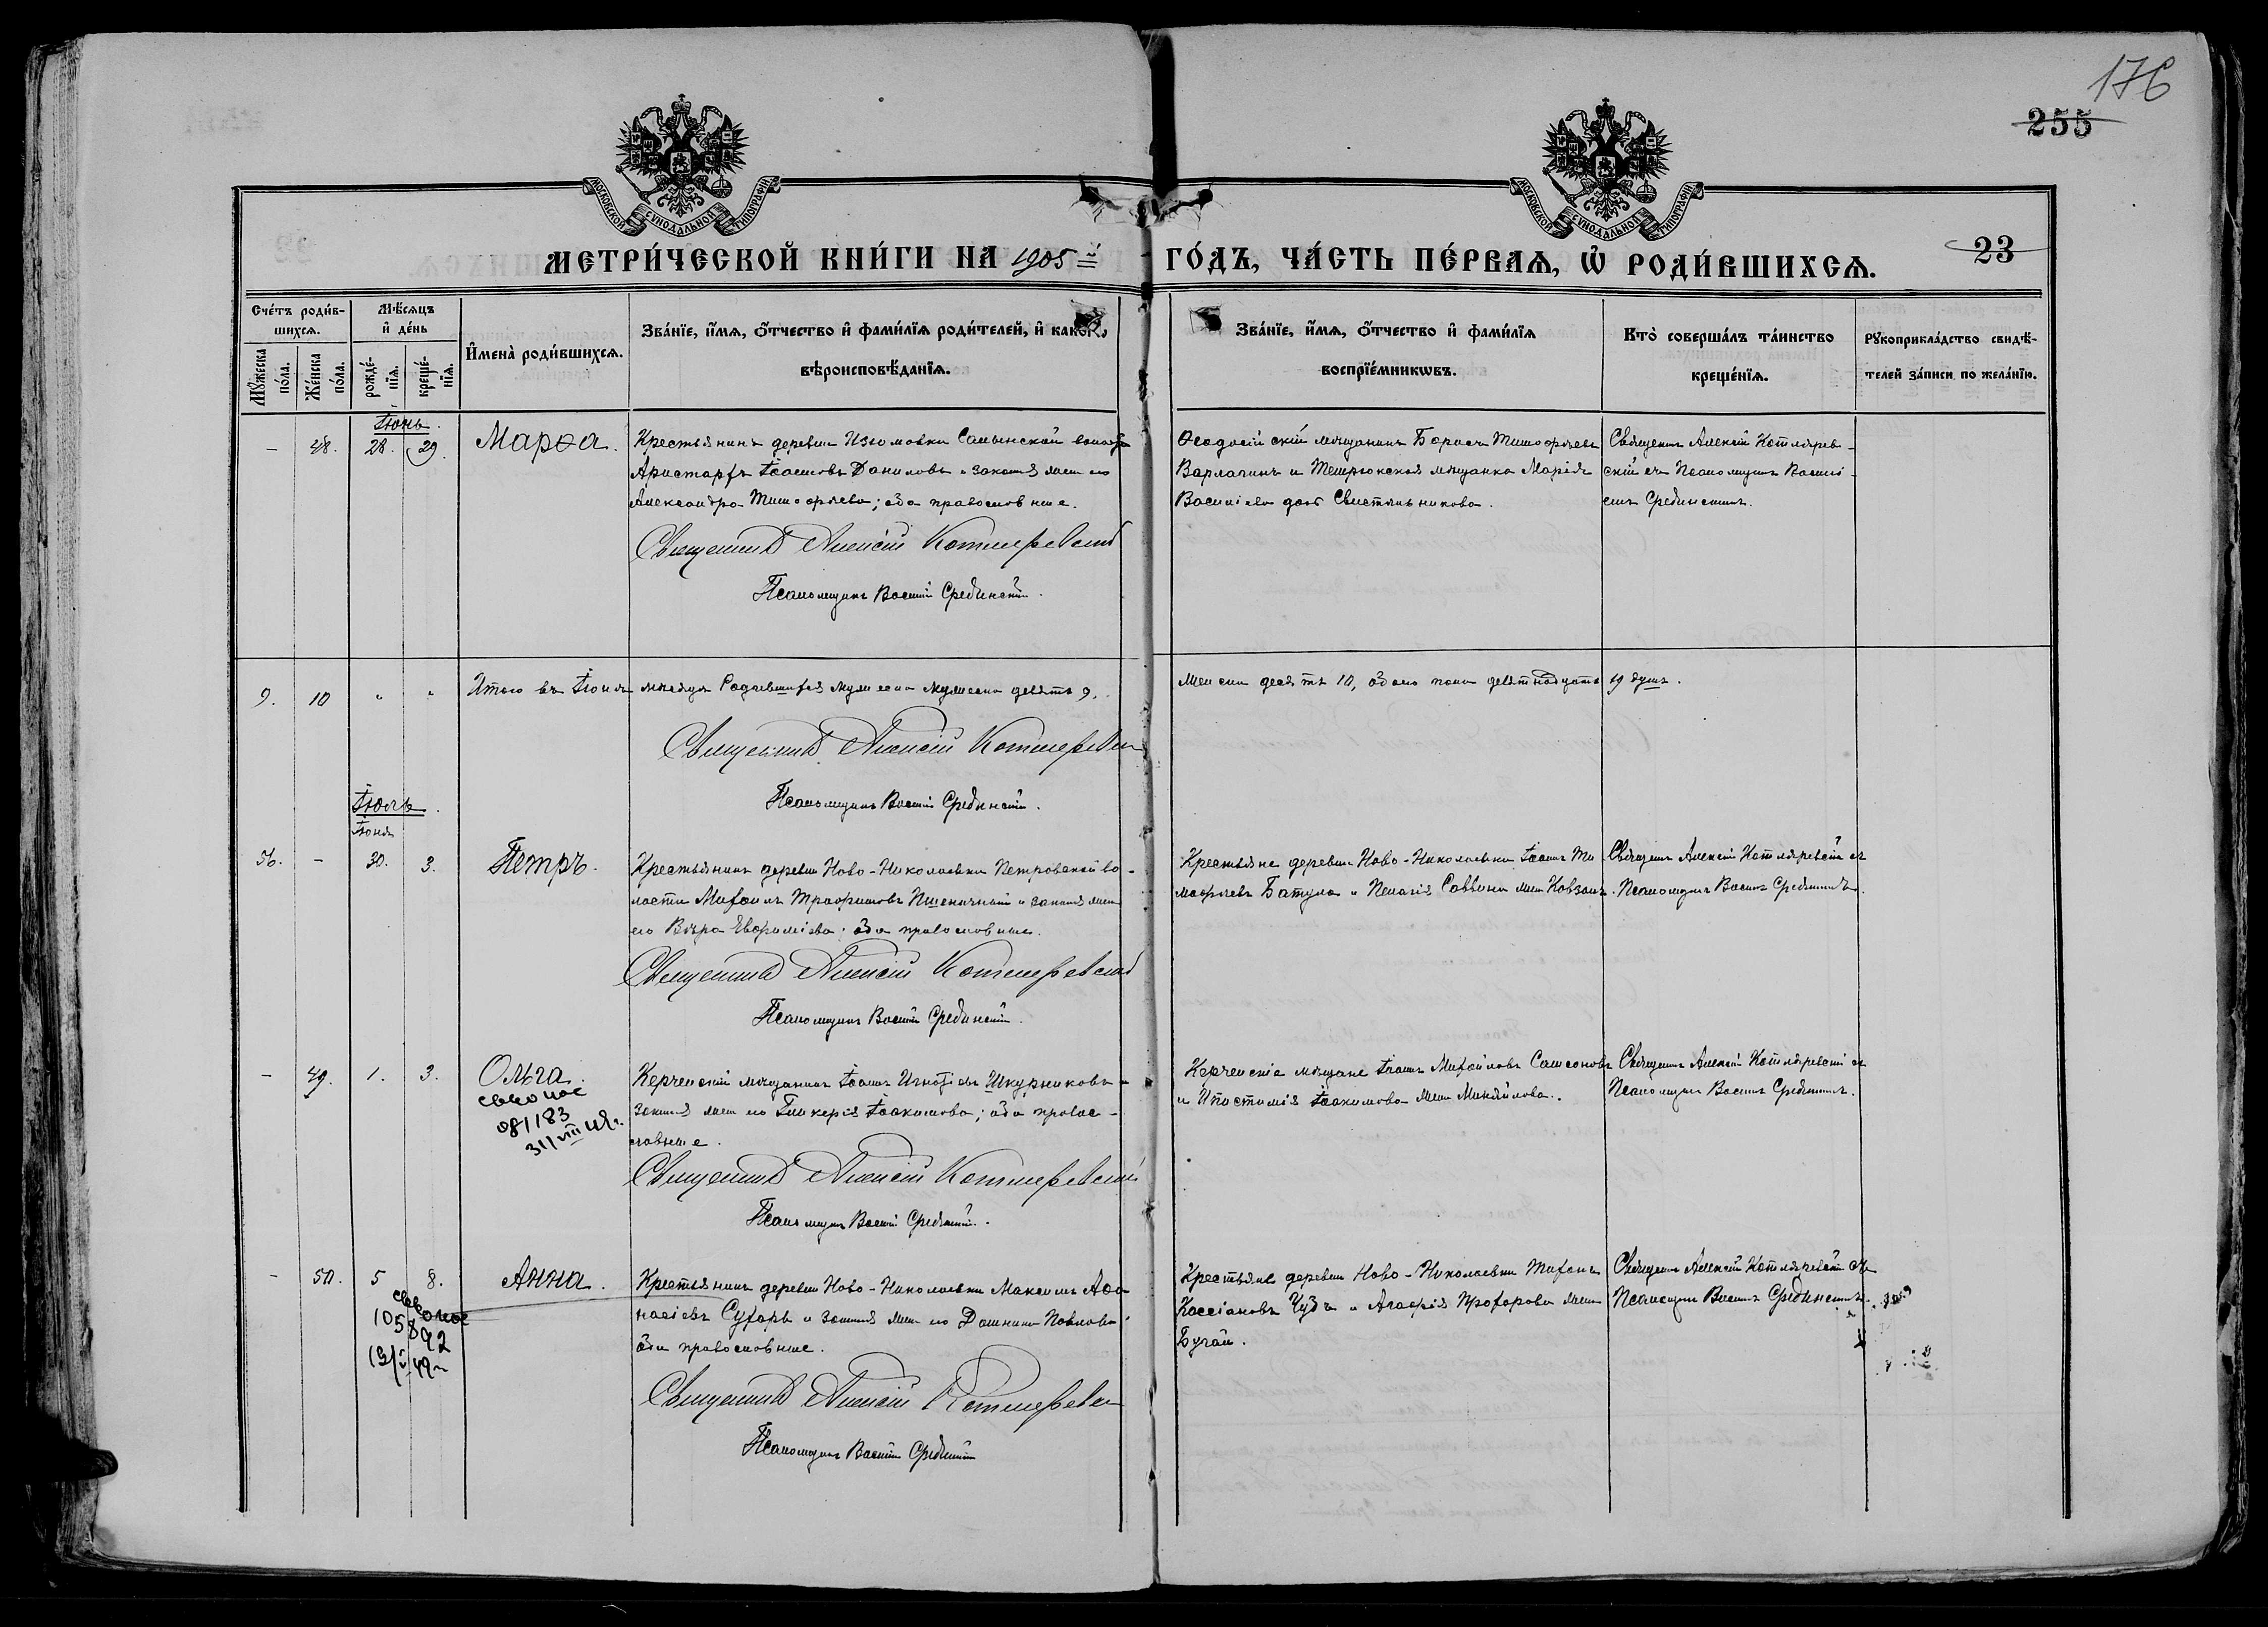 176
255
МОСКОВСКОЙ СѴНОДАЛЬНОЙ ТИПОГРАФІИ
МОСКОВСКОЙ СѴНОДАЛЬНОЙ ТИПОГРАФІИ
МЕТРИ́ЧЕСКОЙ КНИ́ГИ НА 1905 й ГО́ДЪ, ЧА́СТЬ ПЕ́РВАѦ, Ѡ РОДИ́ВШИХСѦ.
23
Сче́тъ роди́в-
шихсѧ.
Мꙋ́жеска по́ла.
Же́нска по́ла.
Мѣ́сѧцъ
и҆ де́нь
рожде́-
нїѧ.
креще́-
нїѧ.
И҆мена̀ роди́вшихсѧ.
Зва́нїе, и҆́мѧ, ѻ҆́тчество и҆ фами́лїѧ роди́телей, и҆ како́гѡ
вѣроисповѣ́данїѧ.
Зва́нїе, и҆́мѧ, ѻ҆́тчество и҆ фами́лїѧ
воспрїе́мникѡвъ.
Кто̀ соверша́лъ та́инство
креще́нїѧ.
Рꙋкоприкла́дство свидѣ́-
телей за́писи по жела́нїю.
Іюнь.
– 48. 28. 29. Марѳа.
Крестьянинъ деревни Изюмовки Салынской волости
Аристархъ Іоанновъ Даниловъ и законная жена его
Александра Тимофѣева; оба православные.
Священникъ Алексій Котляревскій
Псаломщикъ Василій Срединскій.
Ѳеодосійскій мѣщанинъ Борисъ Тимофѣевъ
Варлагинъ и Темрюкская мѣщанка Марія
Василіева дочь Свистильникова.
Священникъ Алексій Котлярев-
скій съ Псаломщикомъ Василі-
емъ Срединскимъ.
9. 10 " " Итого въ Іюнѣ мѣсяцѣ Родившихся мужеска девять 9,
женска десять 10, обоего пола девятнадцать 19 душъ.
Священникъ Алексій Котляревскій
Псаломщикъ Василій Срединскій.
Іюль.
Іюня
56. – 30. 3. Петръ.
Крестьянинъ деревни Ново-Николаевки Петровской во-
лости Михаилъ Трофимовъ Пшеничный и законная жена
его Вѣра Евфиміева; оба православные.
Священникъ Алексій Котляревскій
Псаломщикъ Василій Срединскій.
Крестьяне деревни Ново-Николаевки Іоаннъ Ти
мофѣевъ Батула и Пелагія Саввина жена Ковзанъ.
Священникъ Алексій Котляревскій съ
Псаломщикомъ Василіемъ Срединскимъ.
– 49. 1. 3. Ольга.
081183
31/VIII
Керченскій мѣщанинъ Іоаннъ Игнатіевъ Шкурниковъ и
законная жена его Гликерія Іоакимова; оба право-
славные.
Священникъ Алексій Котляревскій
Псаломщикъ Василій Срединскій.
Керченскіе мѣщане Іоаннъ Михайловъ Самсоновъ
и Ипистимія Іоакимова жена Михайлова.
Священникъ Алексій Котляревскій съ
Псаломщикомъ Василіемъ Срединскимъ.
– 50. 5 8. Анна.
105892
Крестьянинъ деревни Ново-Николаевки Максимъ Аѳа
насіевъ Сухарь и законная жена его Домникія Павлова
оба православные.
Священникъ Алексій Котляревскій
Псаломщикъ Василій Срединскій
Крестьяне деревни Ново-Николаевки Тихонъ
Кассіановъ Чубъ и Агафія Прохорова жена
Бугай.
Священникъ Алексій Котляревскій съ
Псаломщикомъ Василіемъ Срединскимъ.